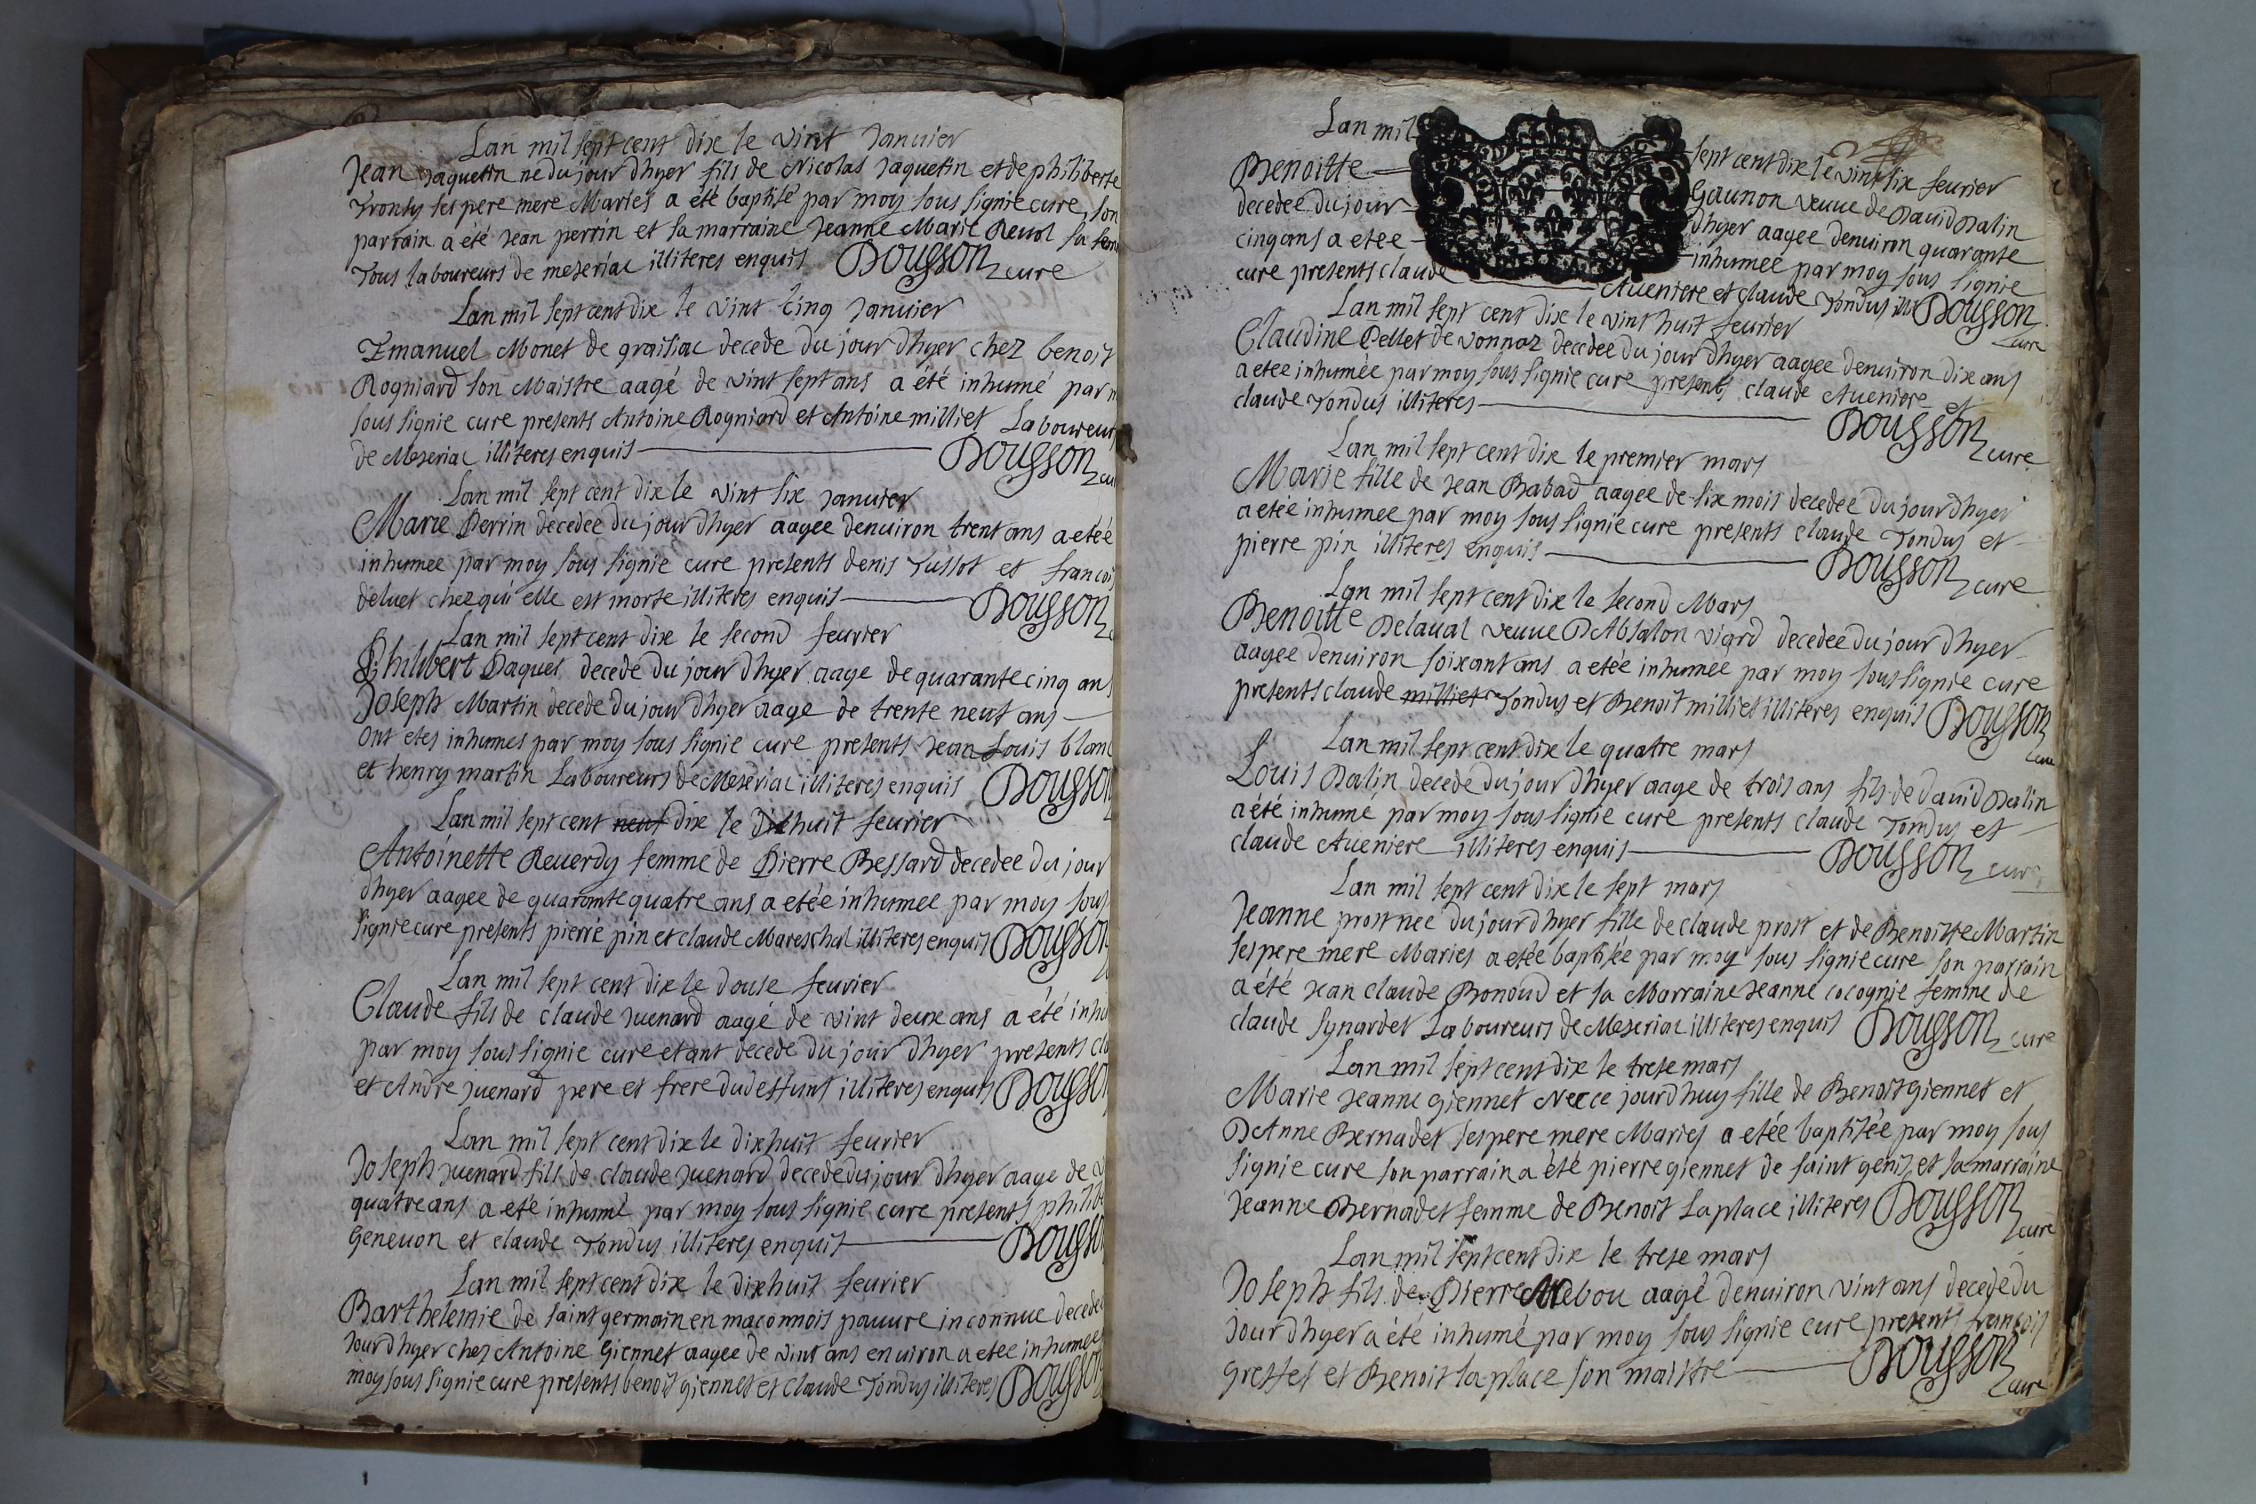 Lan mil sept cent dix le vint Janvier
Jean Jaquetin né du jour dhyer fils de Nicolas Jaquetin et de philiberte
Tronty ses pere mere Mariés a été baptisé par moy sous signie cure son
parrain a été Jean perrin et sa marraine Jeanne Marie Revol sa fem
Tous laboureurs de meseriac illiteres enquis Dousson cure
Lan mil sept cent dix le vint cinq Janvier
Emanuel Monet de graisiac decede du jour dhyer chez benoit
Rogniard son Maistre aagé de vint sept ans a été inhumé par m
sous signie cure presents Antoine Rogniard et Antoine milliet Laboureur
de Meseriac illiteres enquis Dousson cu
Lan mil sept cent dix le vint six Janvier
Marie Perrin decedee du jour dhyer aagee denuiron trent ans a etéé
inhumee par moy sous signie cure presents denis Tussot et francoi
deluet chez qui elle est morte illiteres enquis Dousson
Lan mil sept cent dix le second feurier
Philibert Paquet decede du jour dhyer aage de quarante cinq ans
Joseph Martin decede du jour dhyer aage de trente neuf ans
ont etes inhumes par moy sous signie cure presents Jean Louis blanc
et henry martin Laboureurs de Meseriac illiteres enquis Dousson
Lan mil sept cent neuf dix le dixhuit feurier
Antoinette Reuerdy femme de Pierre Bessard decedee du jour
dhyer aagee de quarante quatre ans a etée inhumee par moy sous
signie cure presents pierre pin et claude Mareschal illiteres enquis Dousson
Lan mil sept cent dix le douse feurier
Claude fils de claude Juenard aagé de vint deux ans a été inhu
par moy sous signie cure etant decede du jour dhyer presents cla
et Andre Juenard pere et frere dudeffunt illiteres enquis Dousson
Lan mil sept cent dix le dixhuit feurier
Joseph Juenard fils de claude Juenard decede du jour dhyer aage de v
quatre ans a eté inhumé par moy sous signie cure presents philibe
Geneuon et claude Tondus illiteres enquis Dousson
Lan mil sept cent dix le dixhuit feurier
Barthelemie de saint germain en maconnois pauure inconnue decede
Jour dhyer chez Antoine Giennet aagee de vint ans enuiron a etee inhumee
moy sous signie cure presents benoit giennet et claude Tondus illiteres Dousson
Lan mil sept cent dix le vint six feurier
Benoitte Gaunon veuue de Dauid Dalin
decedee du jour dhyer aagee denuiron quarante
cinq ans a etee inhumee par moy sous signie
cure presents claude Aueniere et claude Tondus ill Dousson
cure
Lan mil sept cent dix le vint huit feurier
Claudine Pellet de vonnaz decedee du jour dhyer aagee denuiron dix ans
a etee inhumée par moy sous signie cure presents claude Aueniere et
claude Tondus illiteres Dousson cure
Lan mil sept cent dix le premier mars
Marie fille de Jean Rabad aagee de six mois decedee du jour dhyer
a etée inhumee par moy sous signie cure presents claude Tondus et
pierre pin illiteres enquis Dousson cure
Lan mil sept cent dix le second Mars
Benoitte Delaual veuue DAbsalon vigrd decedee du jour dhyer
aagee denuiron soixant ans a etée inhumee par moy sous signie cure
presents claude milliet Tondus et Benoit milliet illiteres enquis Dousson
cure
Lan mil sept cent dix le quatre mars
Louis Dalin decede du jour dhyer aage de trois ans fils de dauid Dalin
a été inhumé par moy sous signie cure presents claude Tondus et
claude Aueniere illiteres enquis Dousson cure
Lan mil sept cent dix le sept mars
Jeanne prost nee du jour dhyer fille de claude prost et de Benoitte Martin
ses pere mere Maries a etée baptisée par moy sous signie cure son parrain
a été Jean claude Bonoud et sa Marraine Jeanne cocognie femme de
claude synardet Laboureurs de Meseriac illiteres enquis Dousson cure
Lan mil sept cent dix le trese mars
Marie Jeanne giennet Nee ce jourdhuy fille de Benoit giennet et
DAnne Bernadet ses pere mere Maries a etée baptisée par moy sous
signie cure son parrain a été pierre giennet de saint genis et sa marraine
Jeanne Bernadet femme de Benoit Laplace illiteres Dousson
cure
Lan mil sept cent dix le trese mars
Joseph fils de Pierre Mebou aagé denuiron vint ans decede du
Jour dhyer a été inhumé par moy sous signie cure presents francois
greffet et Benoit laplace son maistre Dousson
cure